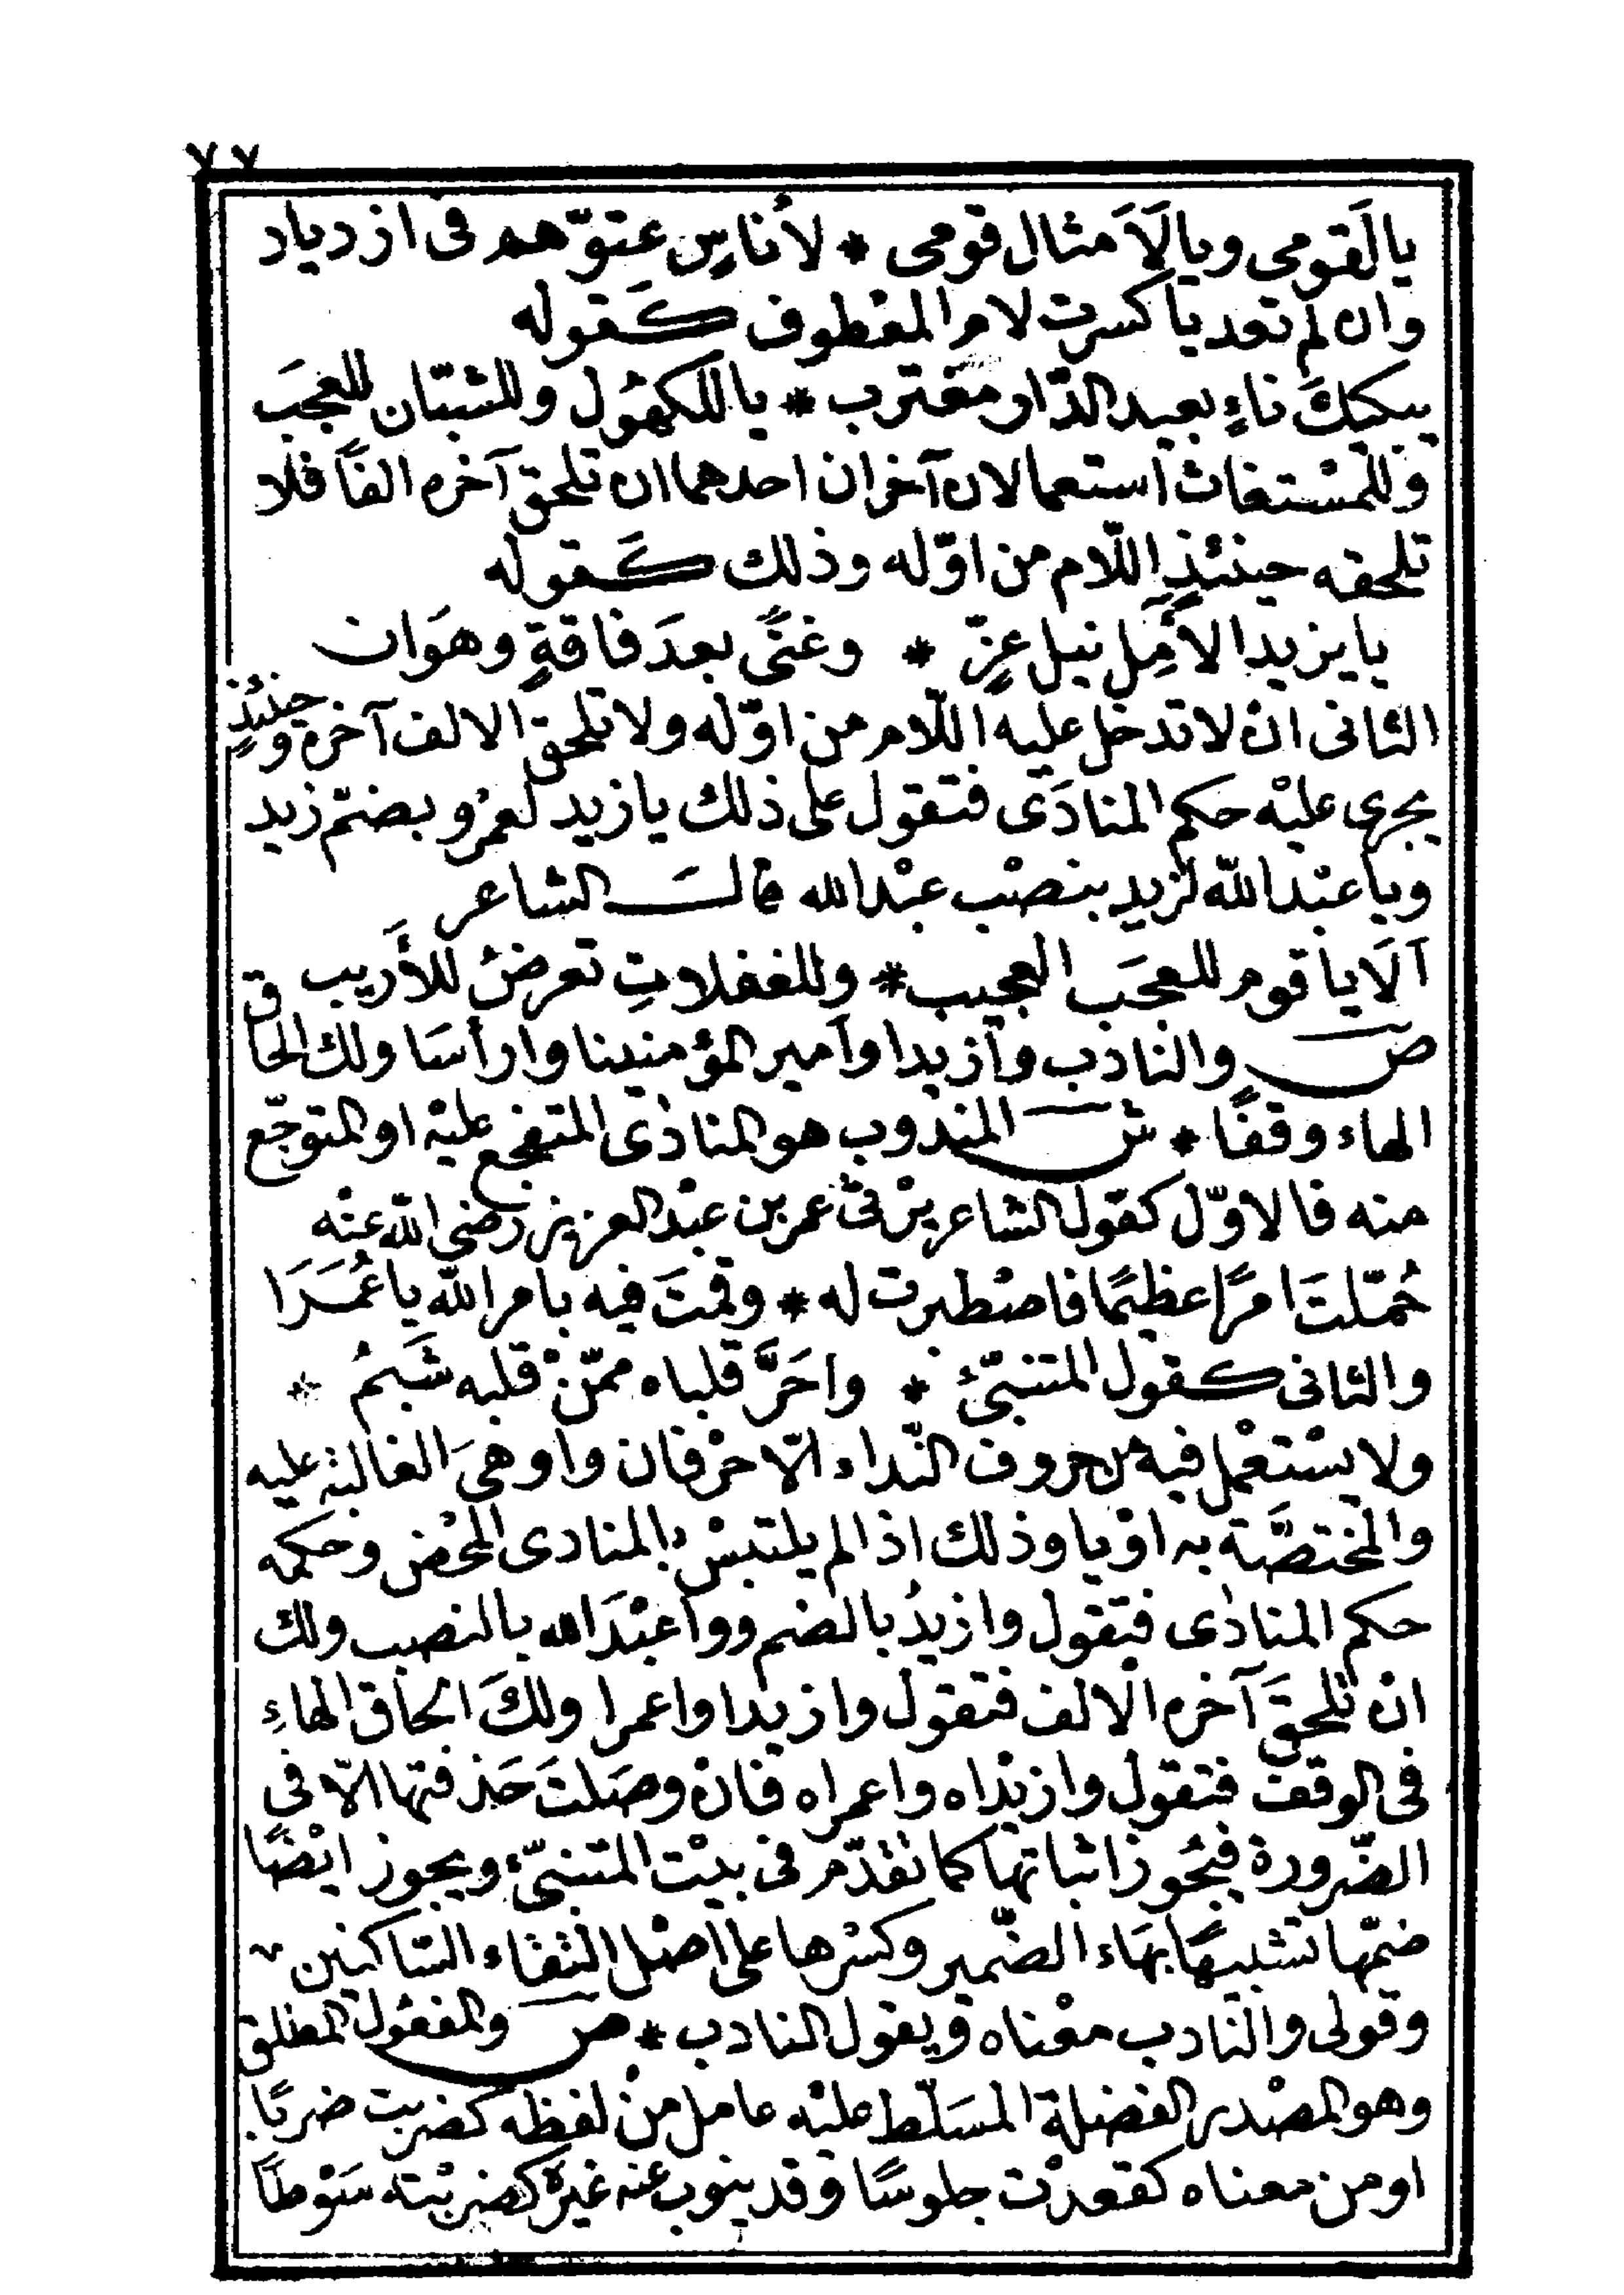 ٧٧
يالَقومى ويالَاَمثال قومى * لأُناسٍ عتوّهم فى ازدياد
وان لم تعد يا كسرت لام المعْطوف كَقوله
يبكيكَ ناءٍ بعيد الدّار مغترب * ياللكهُول وللشبّان للعجَب
وللمسْتغاث استعمالان آخران احدهما ان تلحق آخره الفًا فلا
تلحقه حينئذٍ اللّام من اوّله وذلك كَقوله
يا يزيدا لآمِلٍ نيل عزّ * وغنًى بعدَ فاقةٍ وهوَان
الثانى انْ لا تدخل عليه اللّام من اوّله ولا تلحق الالف آخره وحينئذٍ
يجرى عليْه حكم المنادَى فتقول على ذلك يا زيد لعمْرو بضمّ زيد
ويا عبْد اللّه لزيدٍ بنصْب عبْد الله قالَ الشاعر
اَلَا يا قوم للعجَب العجيب * وللغفلاتِ تعرضُ للأَريب
صَ والنادب وازيدا واَمير المؤمنينا وارأسَا ولك الحاق
الهاء وقفًا * شَ المندوب هو المنادَى المتفجع عليْه او المتوجّع
منه فالاوّل كقول الشاعر يرْثى عمر بن عبْد العزيز رضى اللّه عنْه
حُمّلتَ امرًا عظيمًا فاصْطبرت له * وقمتَ فيه بامر اللّه يا عُمَرَا
والثانى كقول المتنبّئ * واحَرَّ قلباه ممّنْ قلبه شَبِمُ *
ولا يسْتعْمل فيه من حروف النّداء الّا حرْفان وا وهىَ الغالبة عليه
والمختصَّة به اوْ يا وذلك اذا لم يلتبسْ بالمنادى المحْض وحكمه
حكم المنادى فتقول وازيدُ بالضم وواعبْدَ الله بالنصب ولك
انْ تلحقَ آخره الْالف فتقول وازيدا واعمرا ولكَ الحاق الهاءِ
فى الوقف فتقول وازيدْاه واعمراه فانْ وصَلتَ حَذفتها الّا فى
الضّرورة فيجُوز اثباتها كما تقدّم فى بيْت المتنبّئ ويجوز ايْضًا
ضمّها تشبيهًا بهَاء الضّمير وكسْرها على اصْل التقاء السّاكنين
وقولى والنّادب معْناه ويقول النادب * صَ والمفعُول المطلق
وهو المصْدر الفضلة المسَلّط عليْه عامل منْ لفظه كضربت ضربًا
او من معناه كقعدْت جلوسًا وقد ينوب عنه غيره كضربْته سَوْطًا